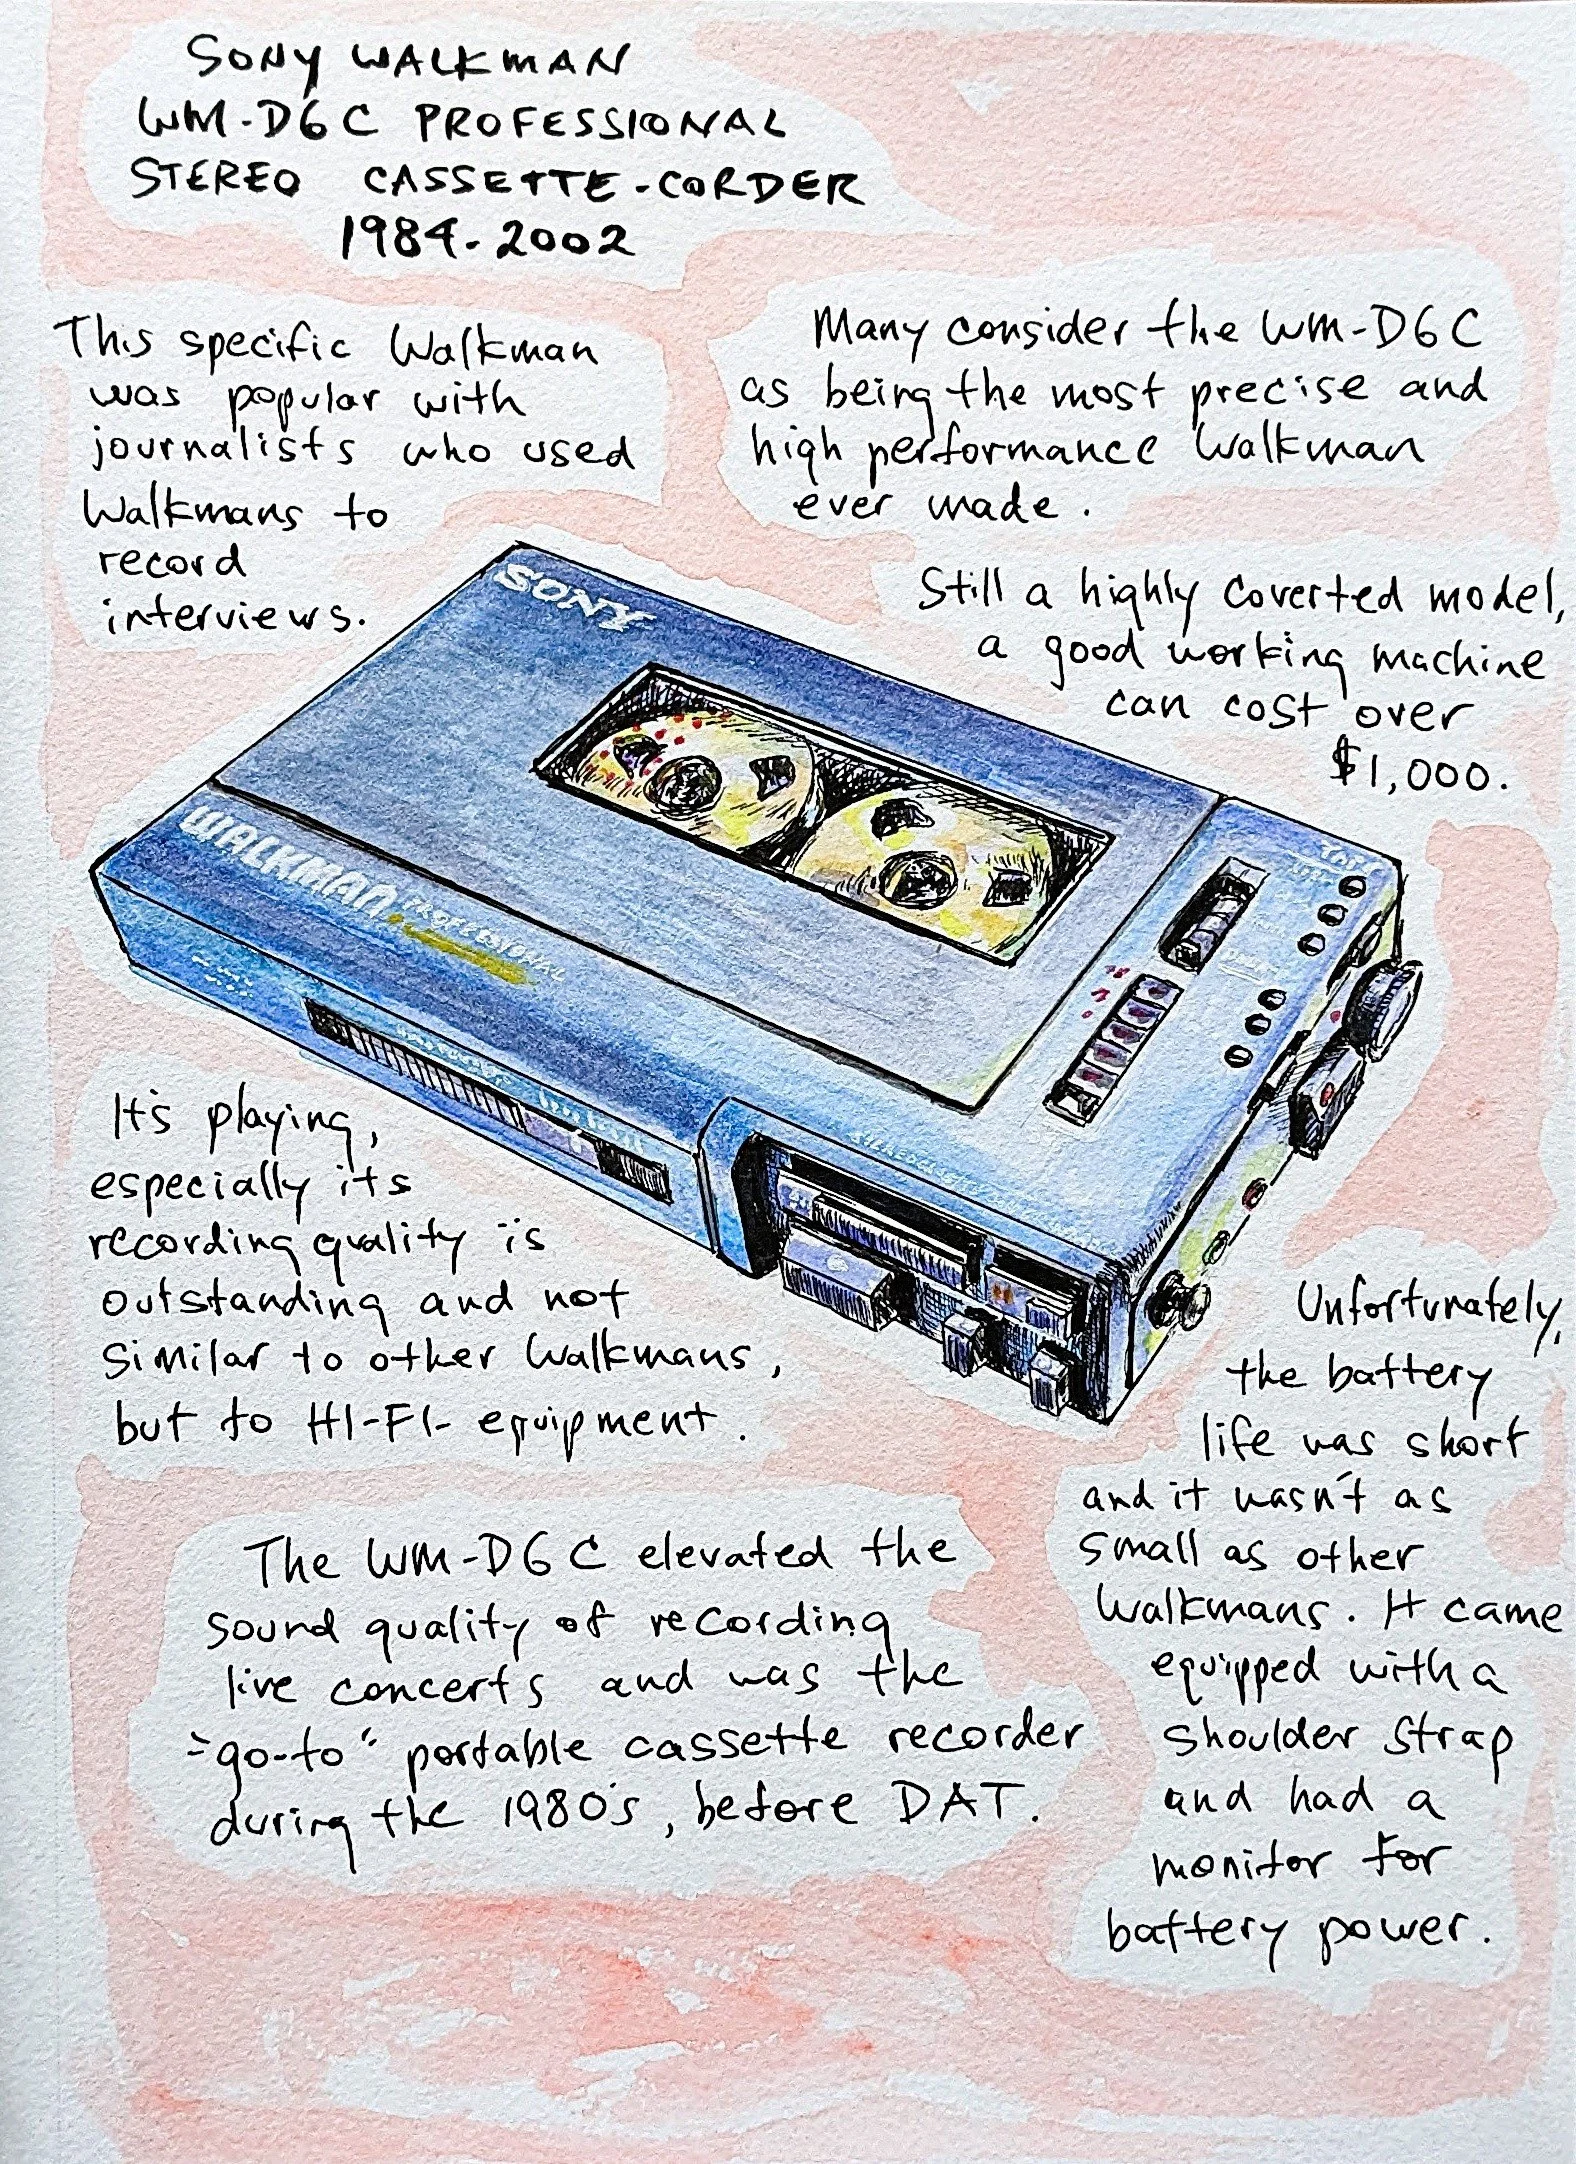 SONY WALKMAN
WM-D6C PROFESSIONAL
STEREO CASSETTE-CORDER
1984-2002
This specific Walkman
was popular with
journalists who used
Walkmans to
record
interviews.
Many consider the WM-D6C
as being the most precise and
high performance Walkman
ever made.
Still a highly coverted model,
a good working machine
can cost over
$1,000.
SONY
WALKMAN
PROFESSIONAL
It's playing,
especially its
recording quality is
outstanding and not
similar to other Walkmans,
but to HI-FI- equipment.
Unfortunately,
the battery
life was short
and it wasn't as
small as other
Walkmans. It came
equipped with a
shoulder strap
and had a
monitor for
battery power.
The WM-D6C elevated the
sound quality of recording
live concerts and was the
"go-to" portable cassette recorder
during the 1980's, before DAT.